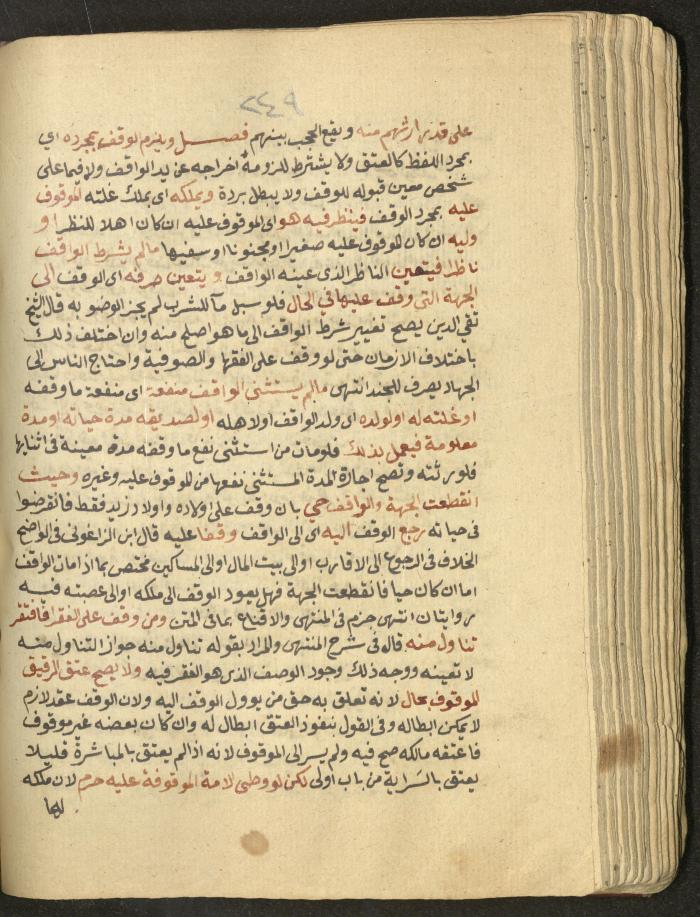 ٢٤٩
على قدر ارثهم منه ويقع الحجب بينهم فصل ويلزم الوقف بمجرده اي
بمجرد اللفظ كالعتق ولا يشترط للزومه اخراجه عن يد الواقف ولا فيما على
شخص معين قبوله للوقف ولا يبطل برده ويملكه اي يملك غلته الموقوف
عليه بمجرد الوقف فينظر فيه هو اي الموقوف عليه ان كان اهلا للنظر او
وليه ان كان الموقوف عليه صغيرا او مجنونا او سفيها مالم يشرط الواقف
ناظرا فيتعين الناظر الذي عينه الواقف ويتعين صرفه اي الوقف الى
الجهة التي وقف عليها في الحال فلو سبل مآ للشرب لم يجز الوضو به قال الشيخ
تقي الدين يصح تغيير شرط الواقف الى ما هو اصلح منه وان اختلف ذلك
باختلاف الازمان حتى لو وقف على الفقها والصوفية واحتاج الناس الى
الجهاد يصرف للجند انتهى مالم يستثني الواقف منفعة اي منفعة ما وقفه
او غلته له او لولده اي ولد الواقف او لاهله او لصديقه مدة حياته او مدة
معلومة فيعمل بذلك فلو مات من استثنى نفع ما وقفه مدة معينة في اثنايها
فلورثته وتصح اجارة المدة المستثنى نفعها من الموقوف عليه وغيره وحيث
انقطعت الجهة والواقف حي بان وقف على اولاده واولاد زيد فقط فانقرضوا
في حياته رجع الوقف اليه اي الى الواقف وقفا عليه قال ابن الزاغوني في الواضح
الخلاف في الرجوع الى الاقارب او الى بيت المال او الى المساكين مختص بما اذا مات الواقف
اما ان كان حيا فانقطعت الجهة فهل يعود الوقف الى ملكه او الى عصبته فيه
روايتان انتهى جزم في المنتهى والاقناع بما في المتن ومن وقف على الفقرا فافتقر
تناول منه قال في شرح المنتهى والمراد بقوله تناول منه جواز التناول منه
لا تعينه ووجه ذلك وجود الوصف الذي هو الفقر فيه ولا يصح عتق الرقيق
الموقوف بحال لانه تعلق به حق من يوول الوقف اليه ولان الوقف عقد لازم
لا يمكن ابطاله وفي القول بنفوذ العتق ابطال له وان كان بعضه غير موقوف
فاعتقه مالكه صح فيه ولم يسر الى الموقوف لانه اذا لم يعتق بالمباشرة فليلا
يعتق بالسراية من باب اولى لكن لو وطي الامة الموقوفة عليه حرم لان ملكه
لها